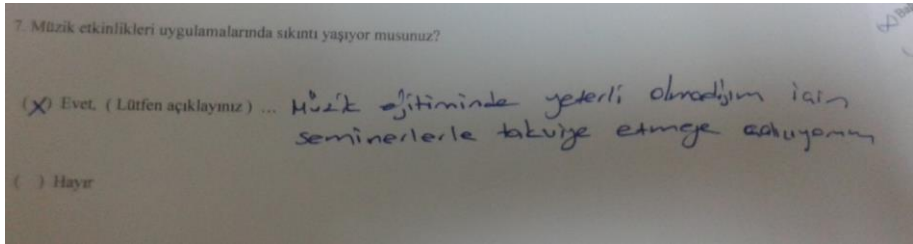 7. Müzik etkinlikleri uygulamalarında sıkıntı yaşıyor musunuz?
(X) Evet. ( Lütfen açıklayınız ) ... Müzik eğitiminde yeterli olmadığım için
seminerlerle takviye etmeye çalışıyorum
( ) Hayır